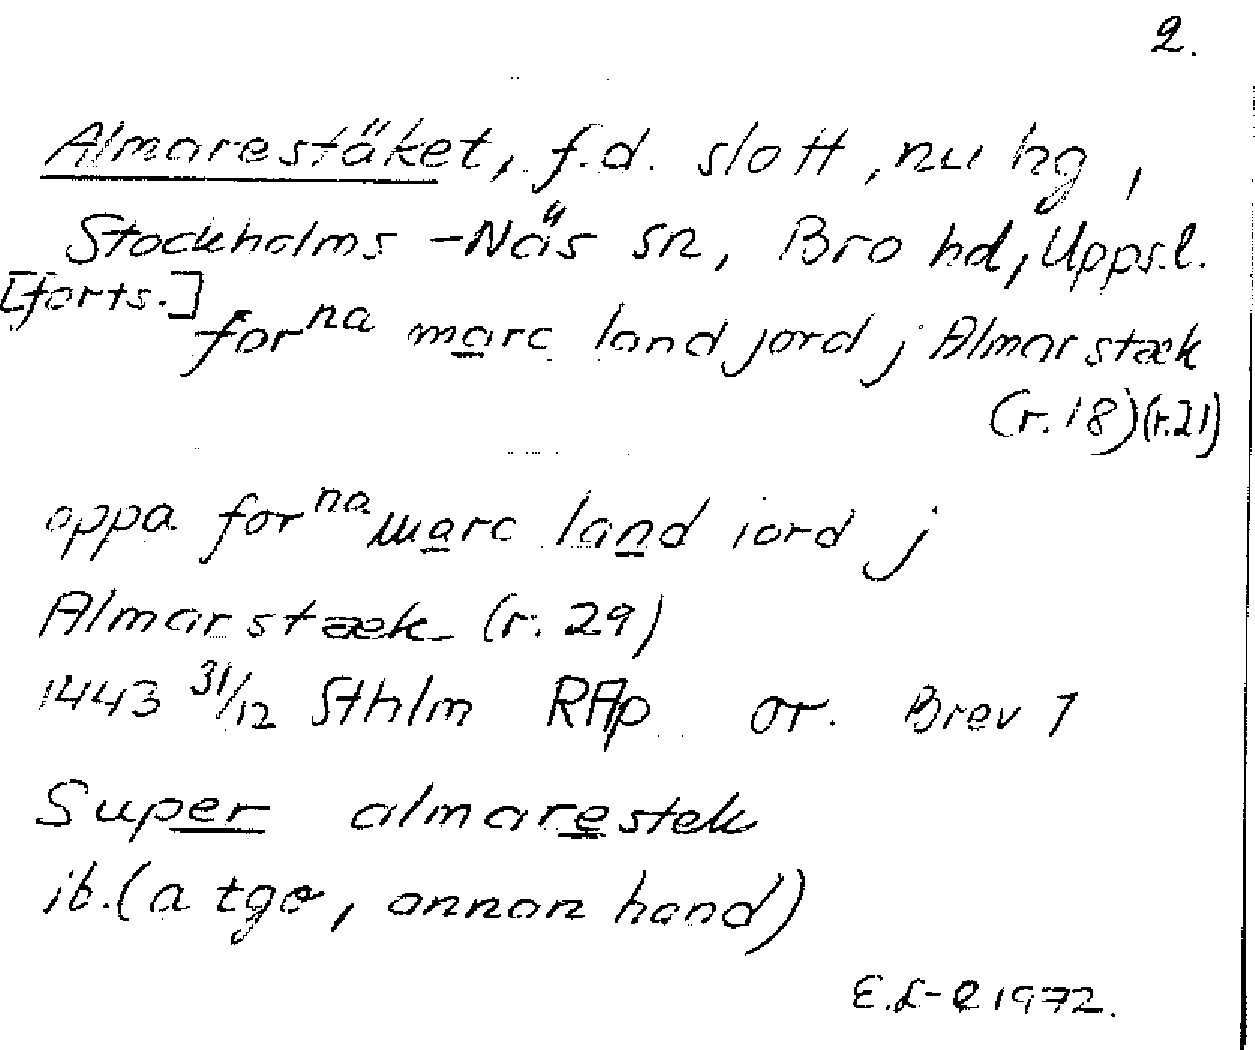 2.
Almarestäket, f.d. slott, nu hg,
Stockholms-Näs sn, Bro hd, Uppsl.
[forts.]
for na marc land jord j Almarstæk
(r. 18) (r. 21)
oppa for na marc land iord j
Almarstæk (r. 29)
1443 31/12 Sthlm RAp or. Brev 1
Super almarestek
ib. (a tgo, annan hand)
E.L-e 1972.